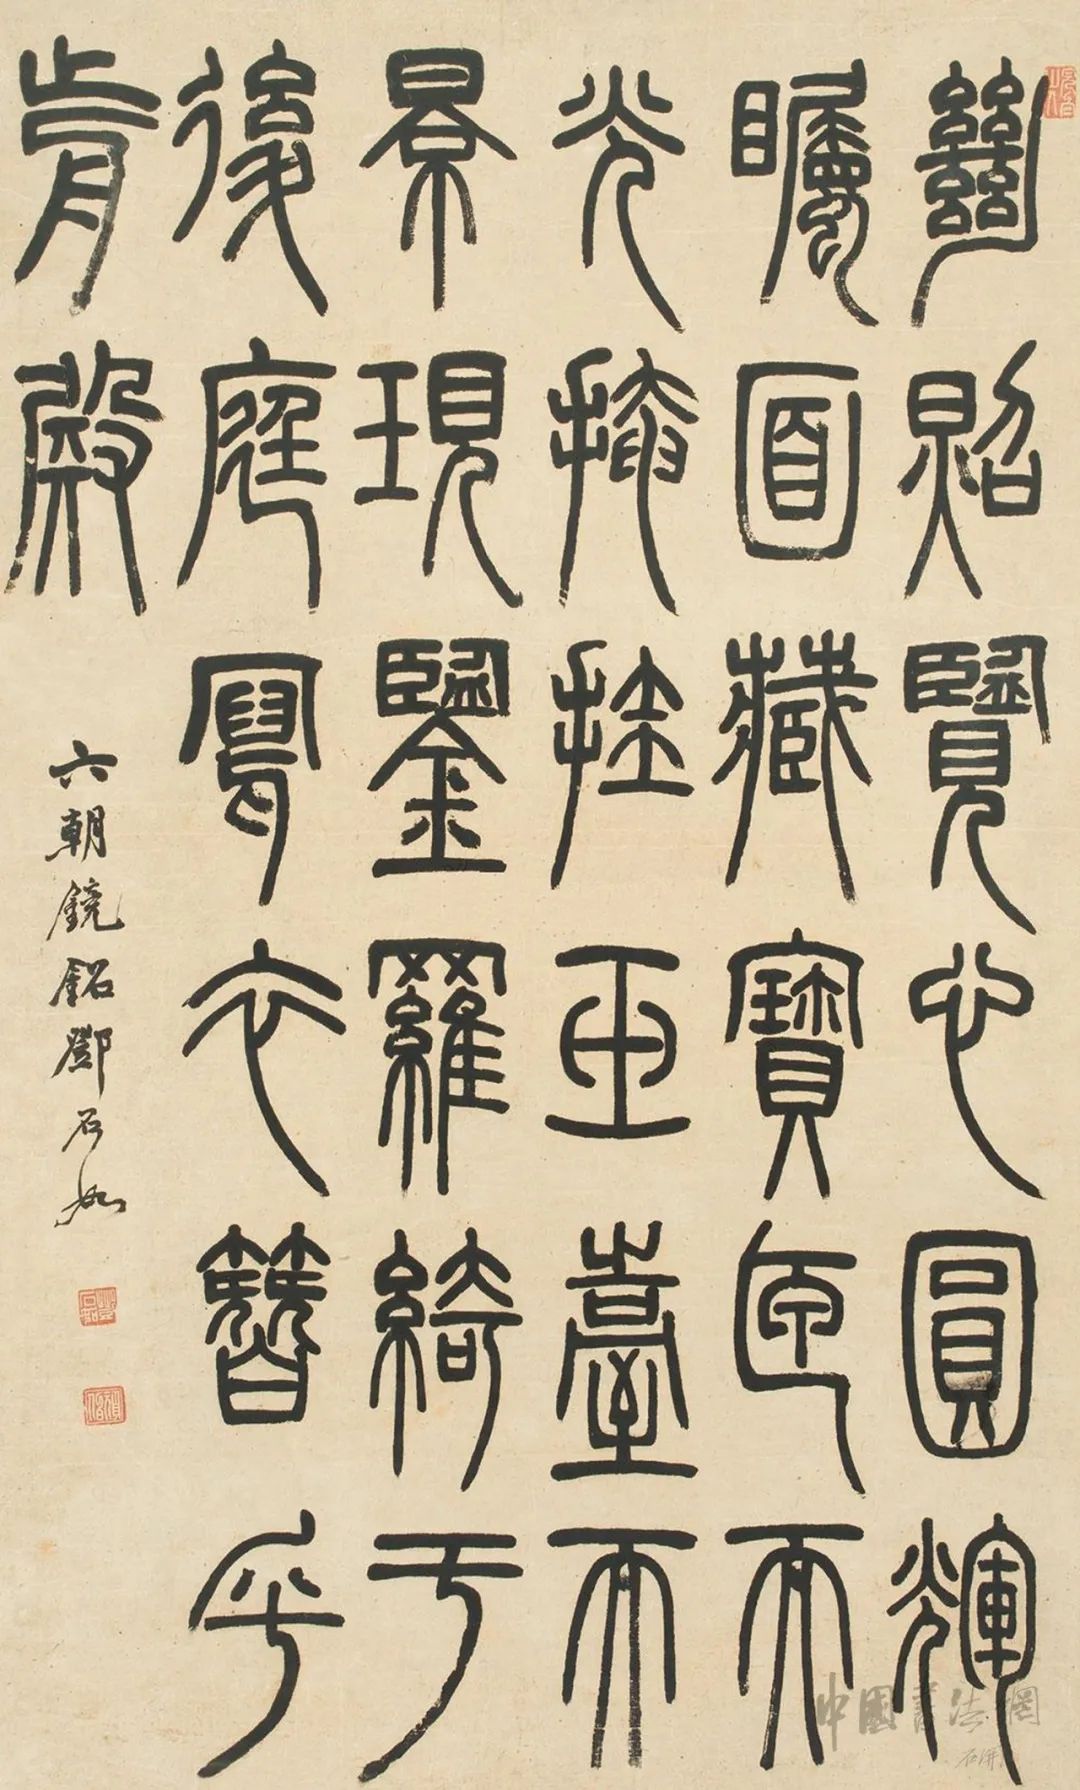 絕照覽心圓輝
矚面藏寶匣而
光掩挂玉臺而
景現鑒羅綺于
後庭寫衣簪乎
前殿
六朝鏡銘鄧石如
頑伯
中國書法網